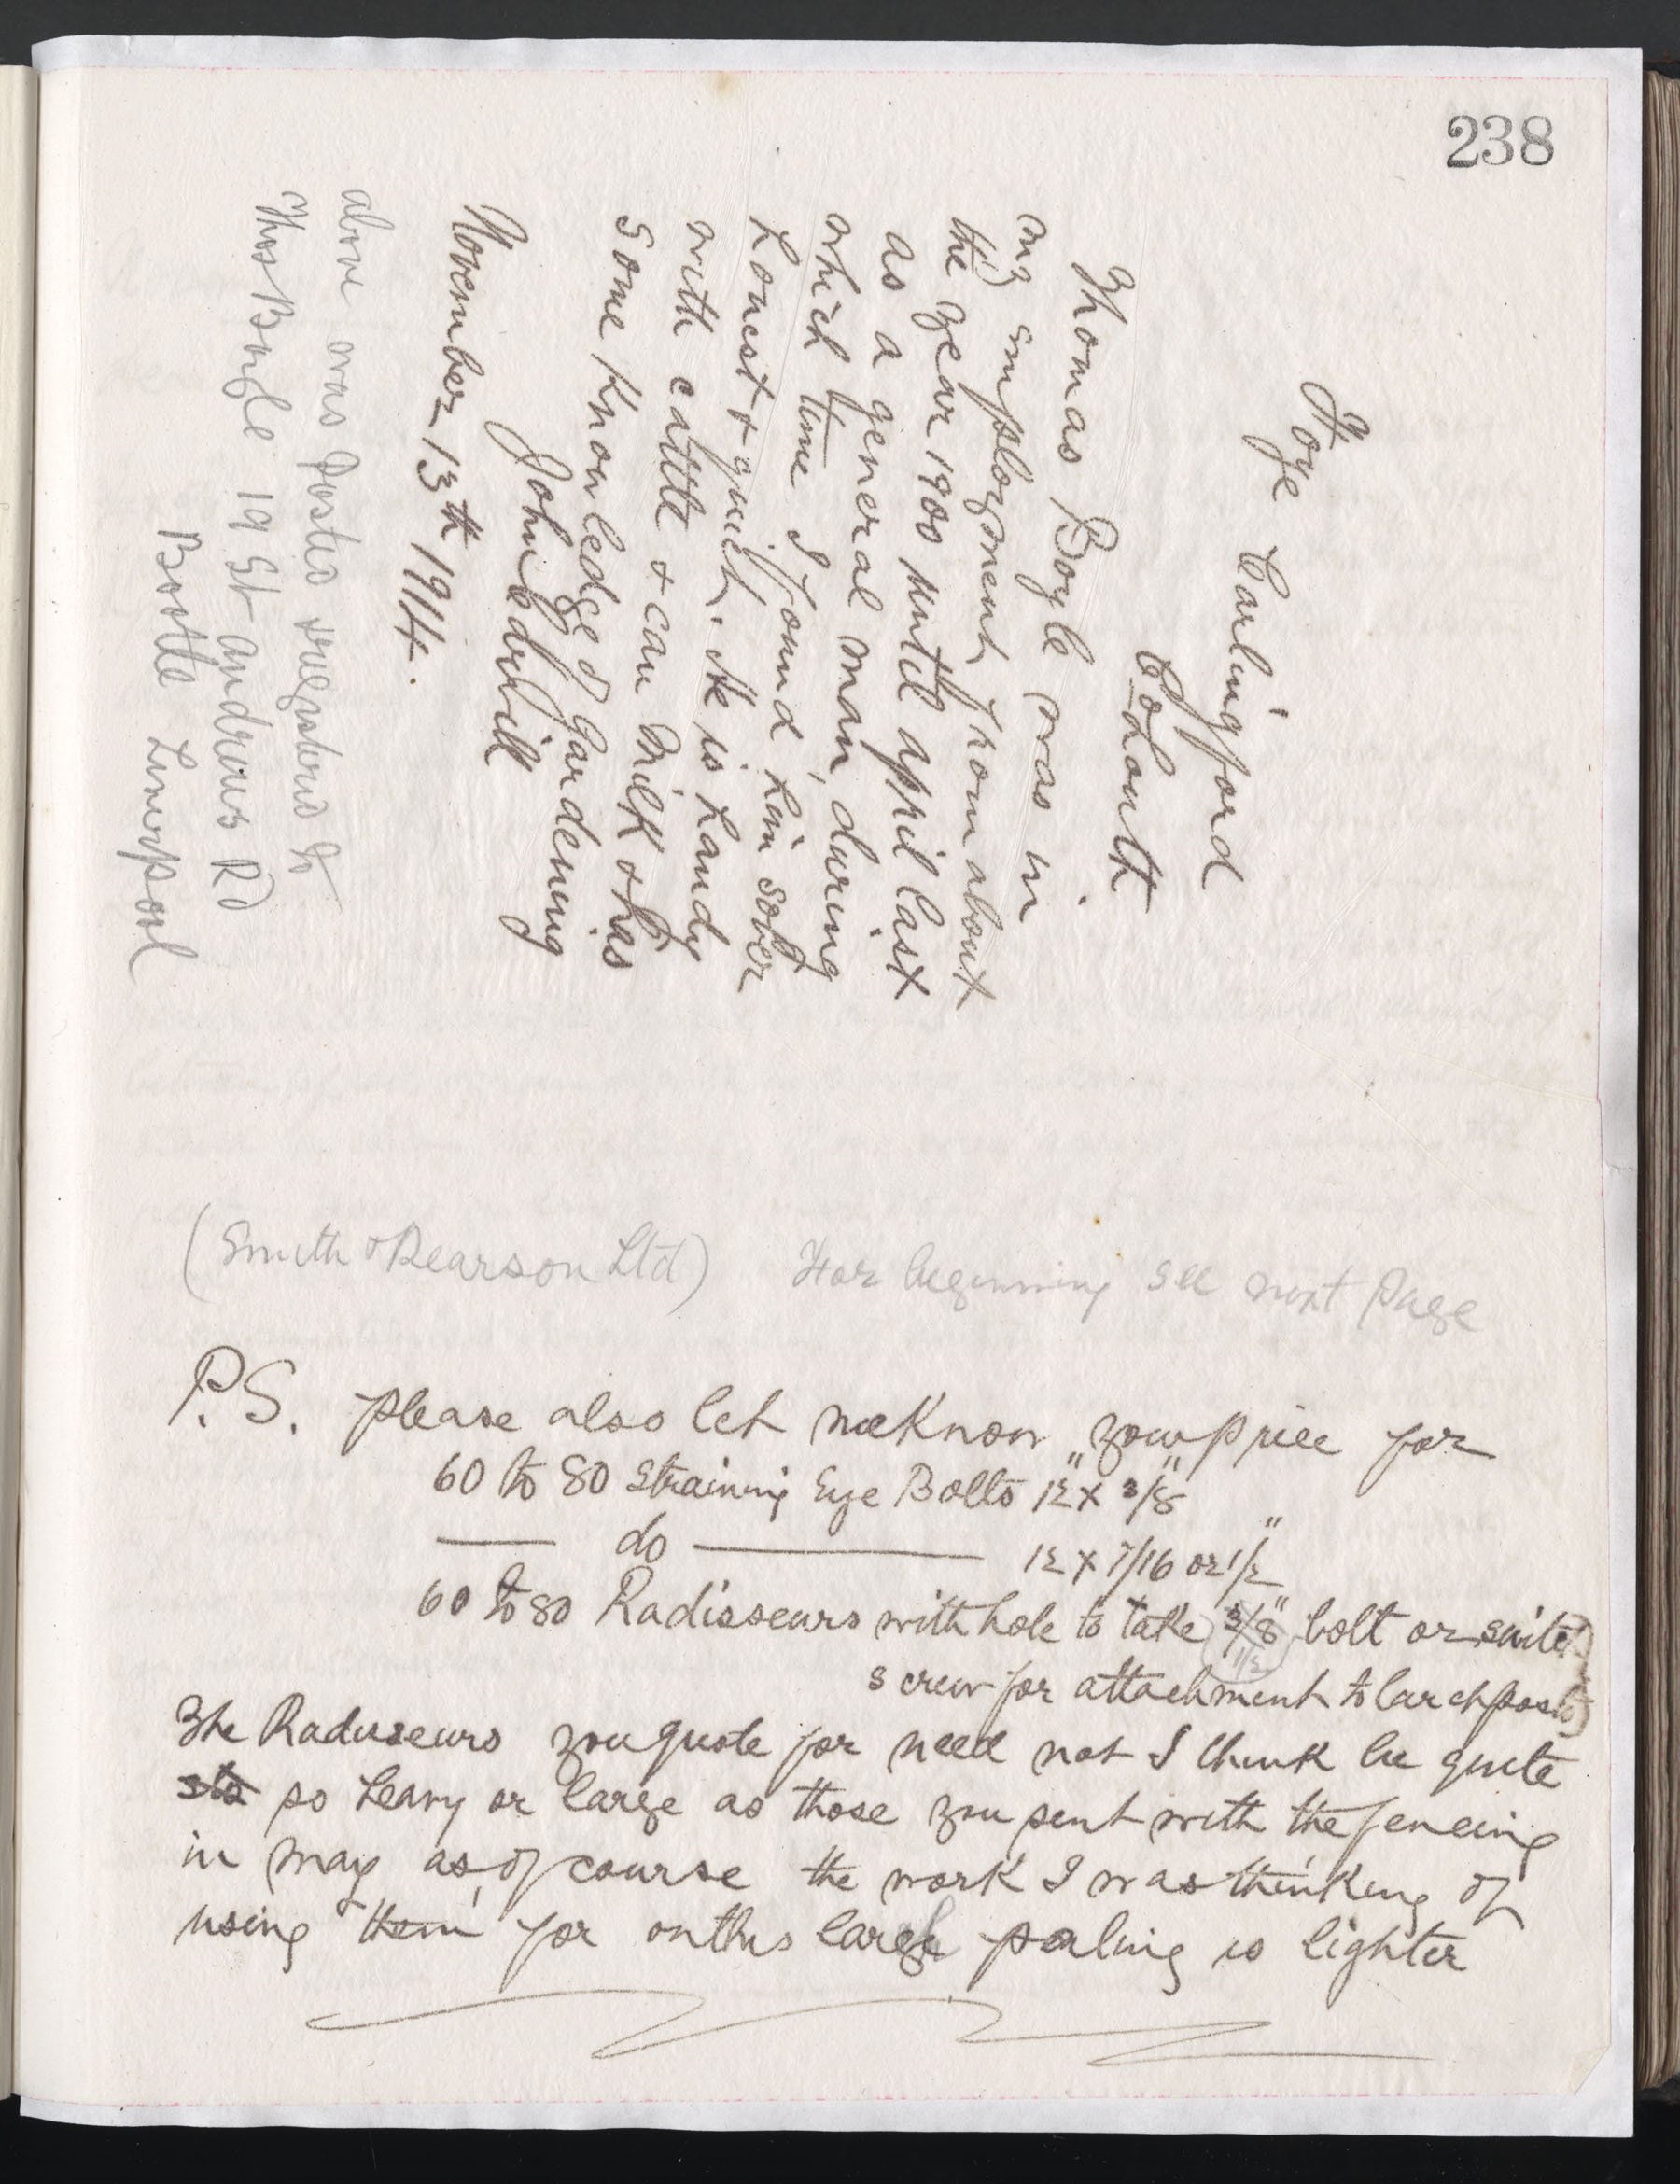 238
Foye Carlingford
Co Louth
Thomas Boyle was in
my employment from about
the year 1900 until april last
as a general man, during
which time I found him sober
honest & quiet. He is handy
with cattle & can milk & has
some knowledge of gardening
John
November 13th 1914.
above was posted registered to
Thos Boyle 19 St Andrews Rd
Bootle Liverpool
(Smith & Pearson Ltd) For beginning see next page
P.S. please also let me know your price for
60 to 80 Straining Eye Bolts 12" x 3/8"
— do — 12 x 7/16 or 1/2"
60 to 80 Radisseurs with hole to take 3/8" bolt or suite
1/2
screw for attachment to larch posts
The Radisseurs you quote for need not I think be quite
so heavy or large as those you sent with the fencing
in may as of course the work I was thinking of
using them for on this larch paling is lighter